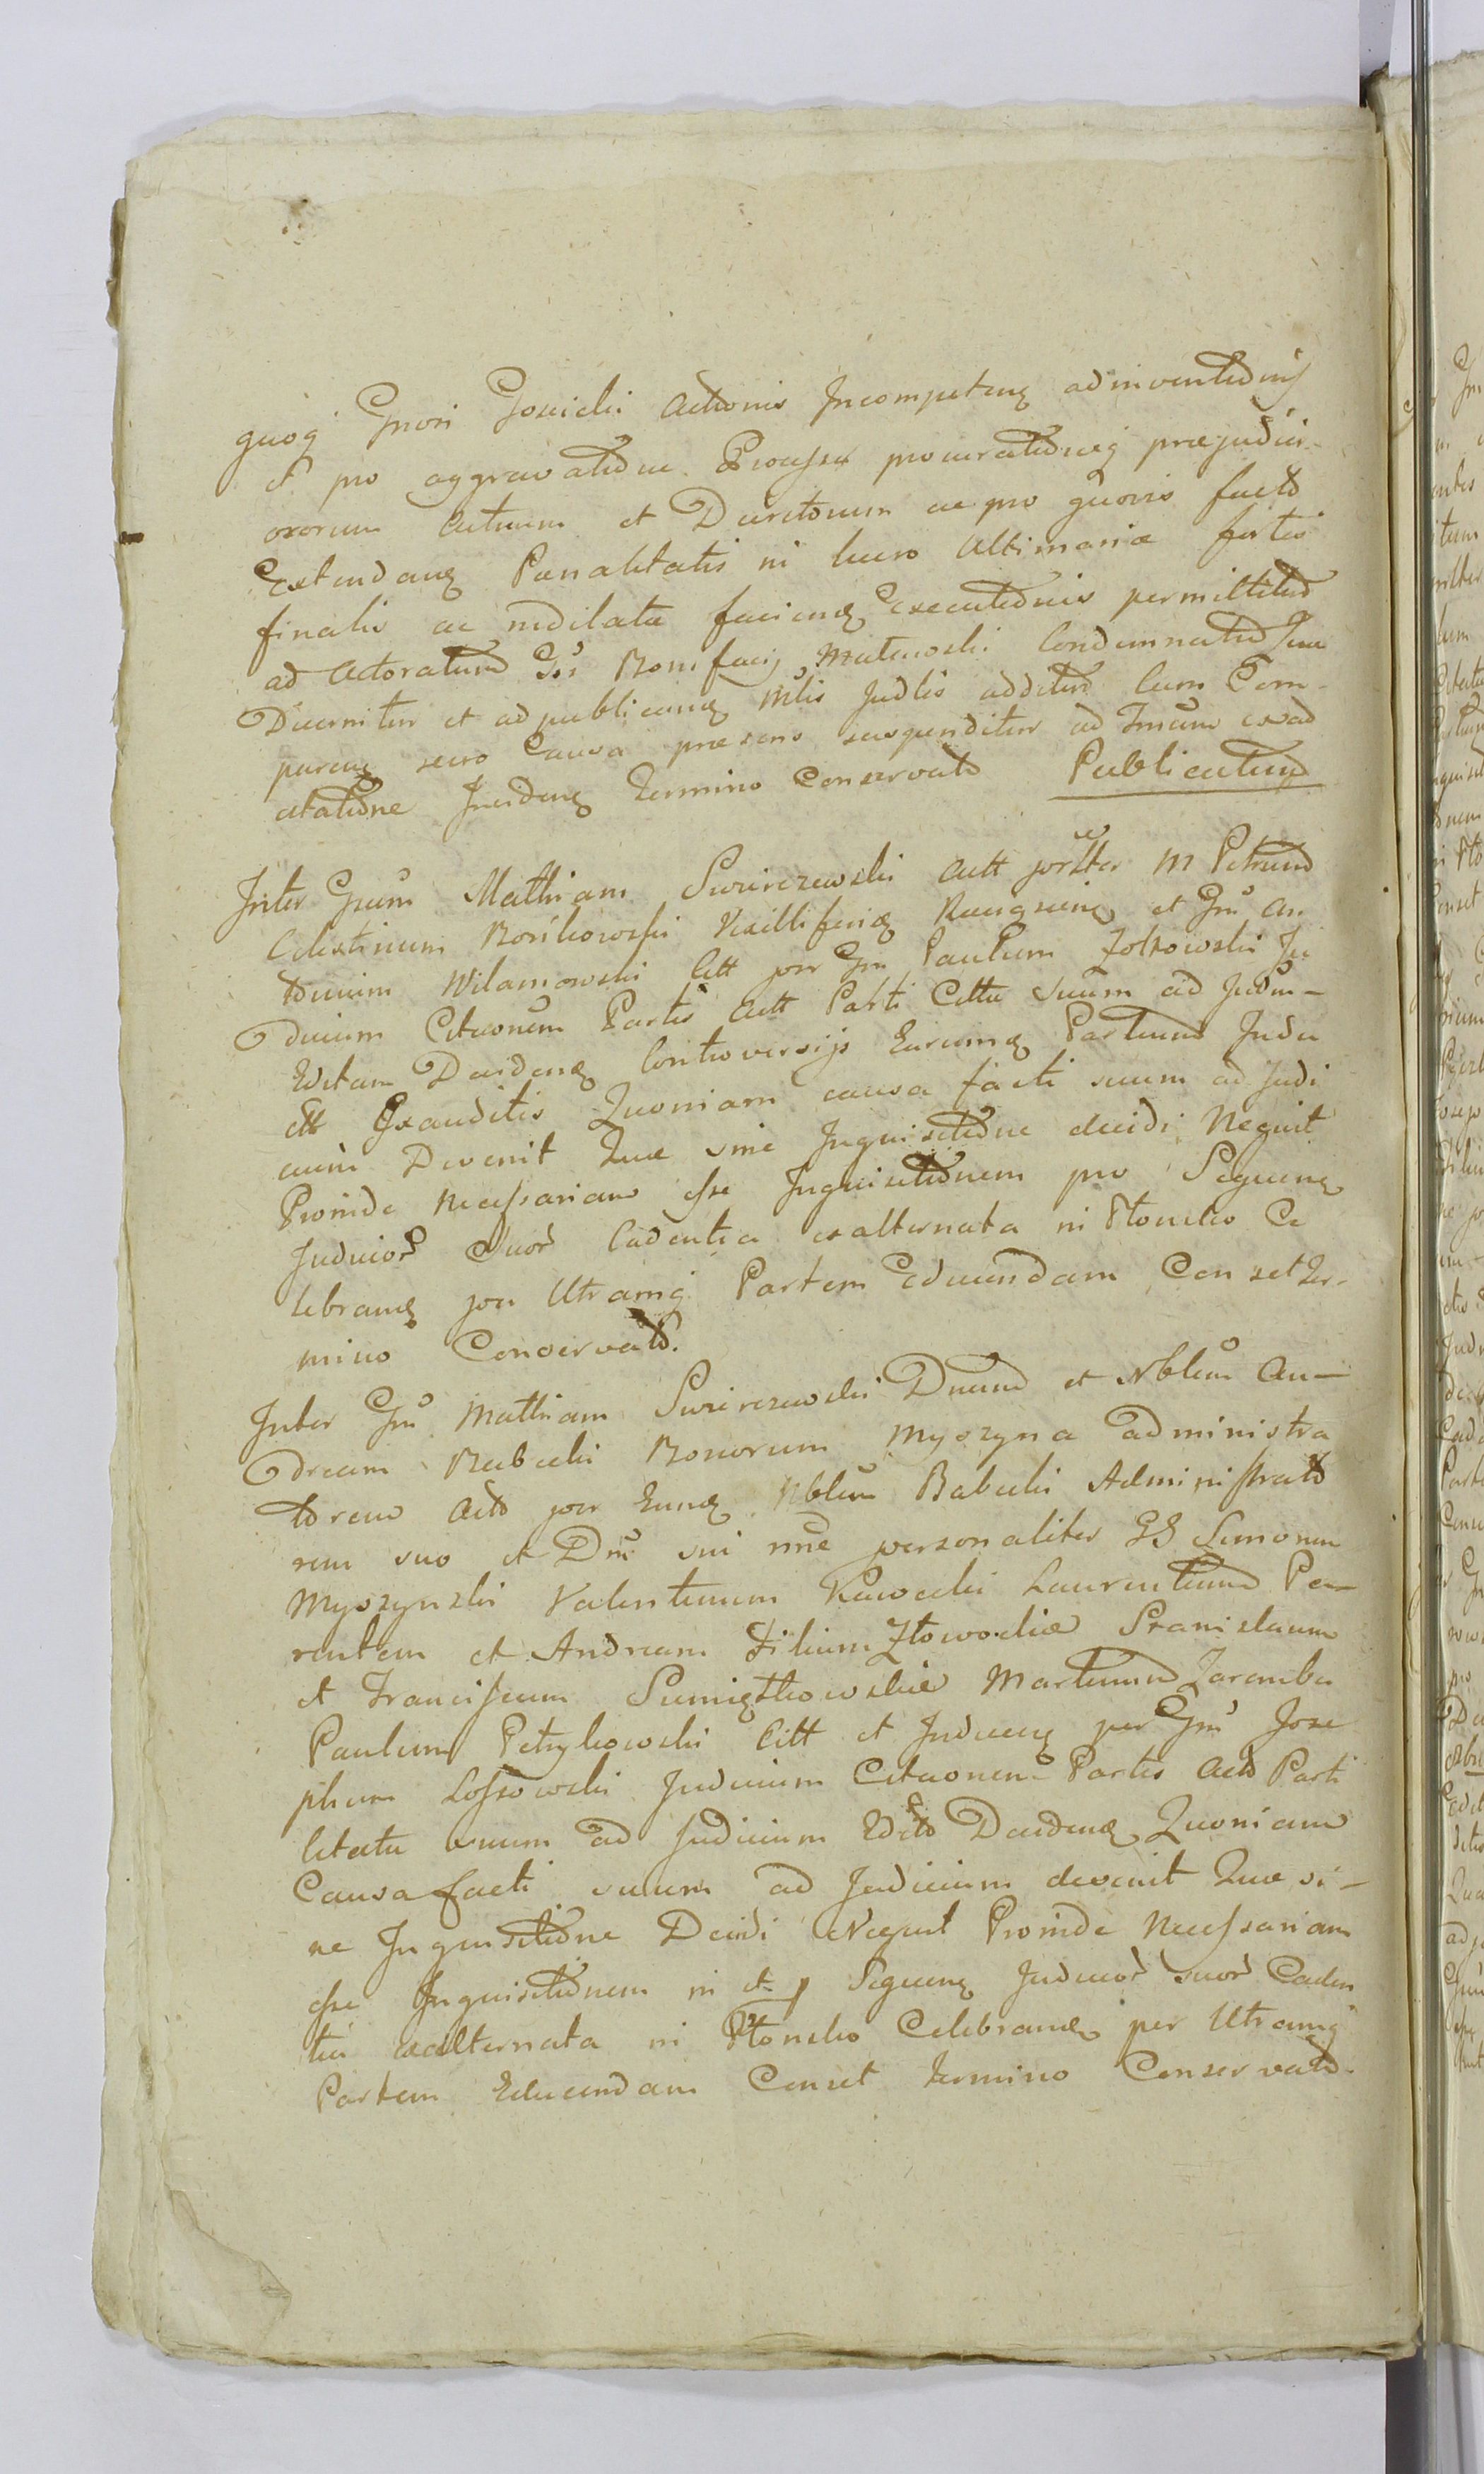 quoq Gnosi Gosicki Actionis Incompetenę adinventionis
et pro aggravatione Processu procurationeq præjudici-
osorum Actuum et Decretorum ac pro quovis facto
Extendenę Pænalitatis in lucro Ultimariæ fortis
finalis ac nedilata facienę Executionis permittitur
ad Actoratum Gsi Bonifacij Mateuoski Condemnatio
Decernitur et ad publicanę Mtis Judtis additur Cum Com-
parenę vero Causa præsens suspenditur ad
citatione Incidenę termino Conservato Publicatum
Inter Gsum Mathiam Swiirczewski Actt M Petrum
Celestinum Borikowski Vexilliferię et Gsu An
tonium Wilamowski Citt per Gsu Paulum Zolkowski Ju
dicium Citaonem Partis Actt Parti Citta suum ad Judm-
Editam Decidenę Controversijs Earumę Partium Judu
Exauditis Quoniam causa facti suum ad Judi
cium Devenit Quæ sine Inquisitione decidi Nequit
Proinde necessariam esse Inquisitionem pro Sequenę
Judicior Suor Cadentia exalternata in Płonsko Ce
lebranę per Utramq Partem Educendam Censet Ter-
mino Conservato.
Inter Gsu Mathiam Swiirczewski Dnum et Nblem An-
dream Babecki Bonorum Myszyna administra
torem Acto per Eunę Nblem Babecki Administrato
rem suo et Dni sui nne personaliter GG Simonem
Myszynski Valentinum Kawecki Laurentium Pa-
rentem et Andream Filium Złowodzkie Stanislaum
et Franciscum Sumiętkowskie Martinum Zaremba
Paulum Petrykowski Citt et Inducenę per Gsu Jose
phum Lossowski Judicium Citaonem Partis Acto Parti
Citata suum ad Judicium Edito Decidenę Quoniam
Causa facti suum ad Judicium devenit Quæ si-
ne Inquisitione Decidi Nequit Proinde Necessariam
esse Inquisitionem in et p Sequenę Judicior suor Caden
tia exalternata in Płonsko Celebranę per Utramq
Partem Educendam Censet termino Conservato.